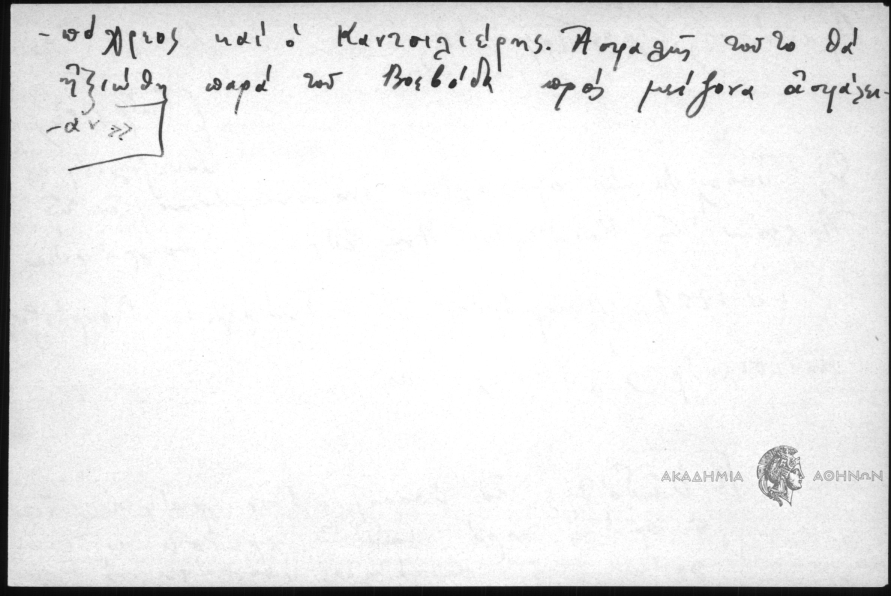 -πόχρεος καί ὁ Καντσιλιέρης. Ἀσφαλῶς τοῦτο θά
ἠξιώθη παρά τοῦ Βοεβόδα πρός μείζονα ἀσφάλει-
-αν»
ΑΚΑΔΗΜΙΑ ΑΘΗΝΩΝ